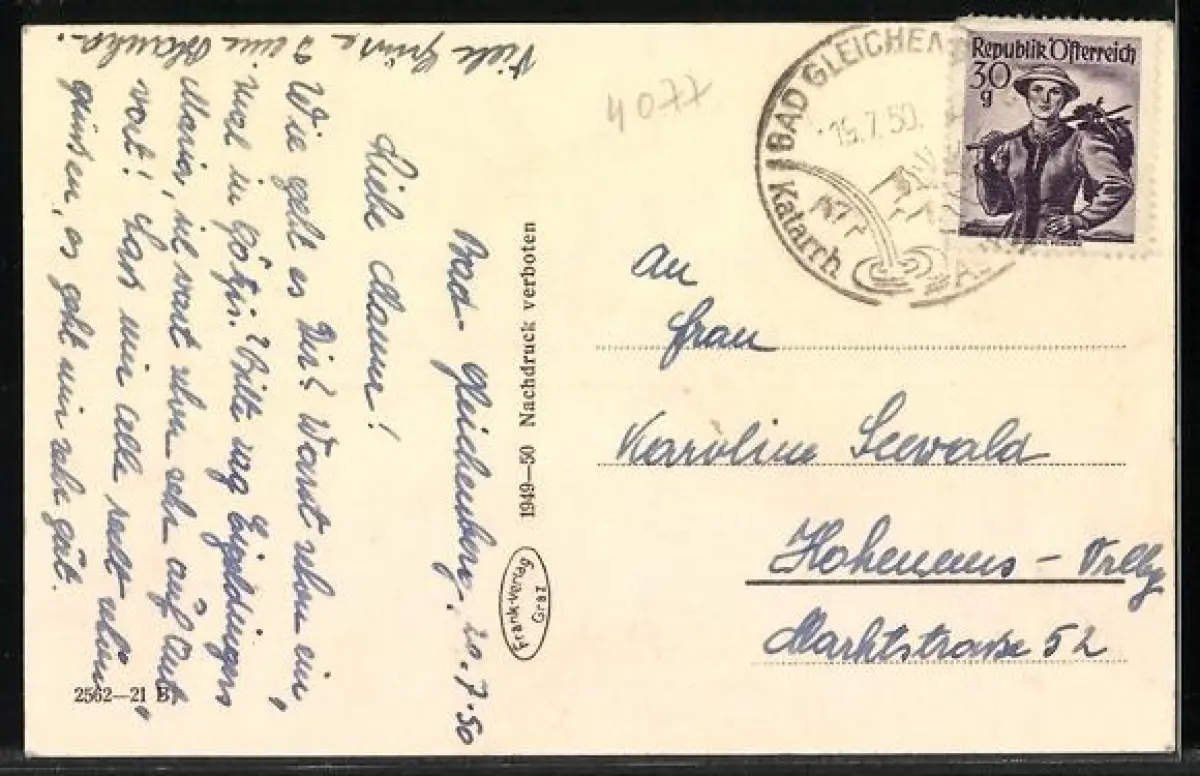 Bad-Gleichenberg, 20.7.50
Liebe Mama!
Wie geht es Dir? Warst schon ein-
mal in Götzis? Bitte sag
Maria, ich wart schon sehr auf Ant-
wort! Lass mir alle recht schön
grüssen, es geht mir sehr gut.
Viele Grüsse
Deine
1949—50 Nachdruck verboten
Frank-Verlag
Graz
2562—21 B
4077
BAD GLEICHEN
15.7.50.
Katarrh
Republik Österreich
30
g
An
Frau
Karoline Seewald
Hohenems - Vrlbg
Marktstrasse 52